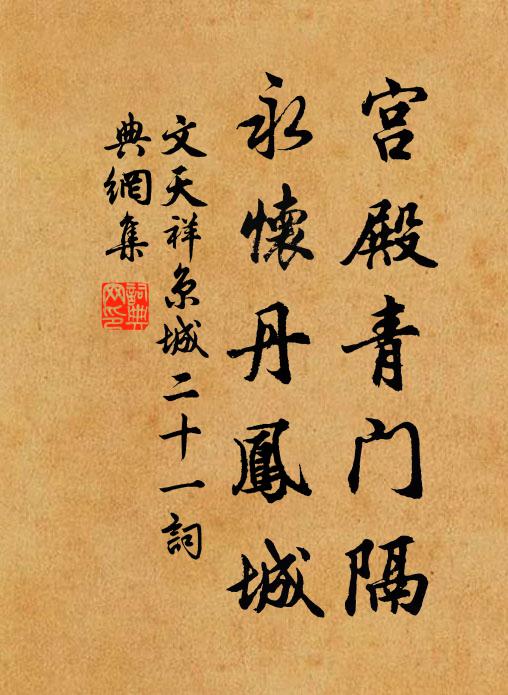 宫殿青门隔
永懷丹鳳城
文天祥京城二十一詞
典網集
詞典
网印